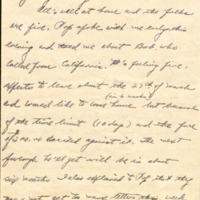 All's well at home and the folks
are fine. Pop spoke with me early this
evening and told me about Bob, who
called from California. He's feeling fine,
expects to leave about the 25th of March
(in 2 weeks)
and would like to come home but because
of the time limit (10 days) and the fare
of we decided against it. The next
furlough he'll get will be about
six months. I also explained to Pop that they
may not get to more letters this week